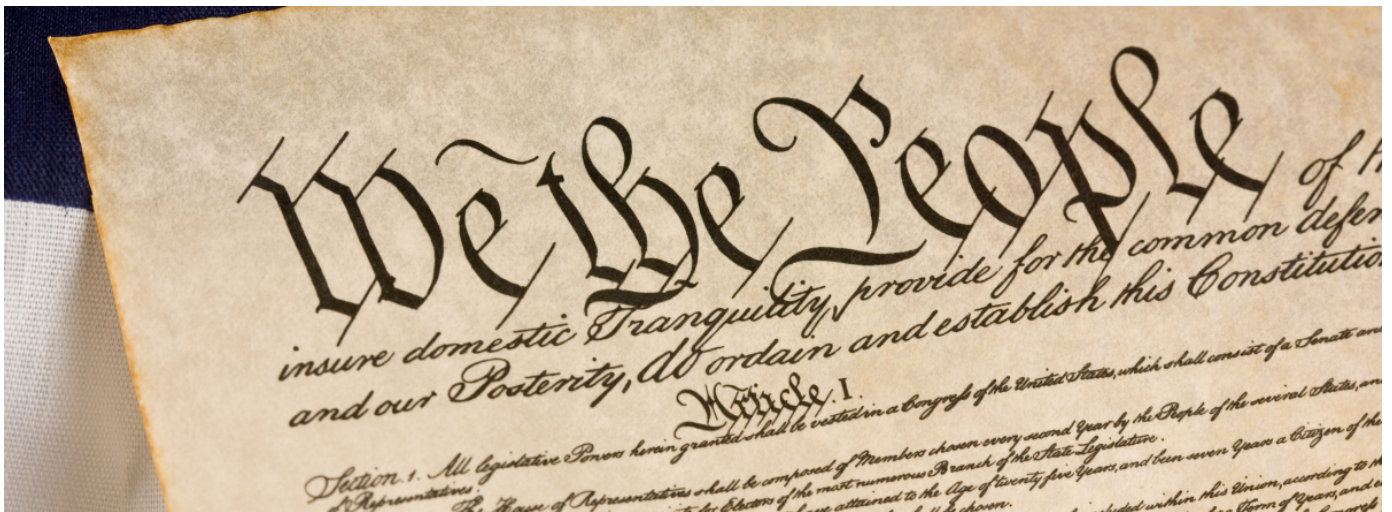 We the People of
insure domestic Tranquility, provide for the common defen
and our Posterity, do ordain and establish this Constitutio
Article. I.
Section. 1. All legislative Powers herein granted shall be vested in a Congress of the United States, which shall consist of a Senate and
of Representatives.
The House of Representatives shall be composed of Members chosen every second Year by the People of the several States, and
for Electors of the most numerous Branch of the State Legislature.
have attained to the Age of twenty five Years, and been seven Years a Citizen of the
shall be chosen.
included within this Union, according to the
Term of Years, and